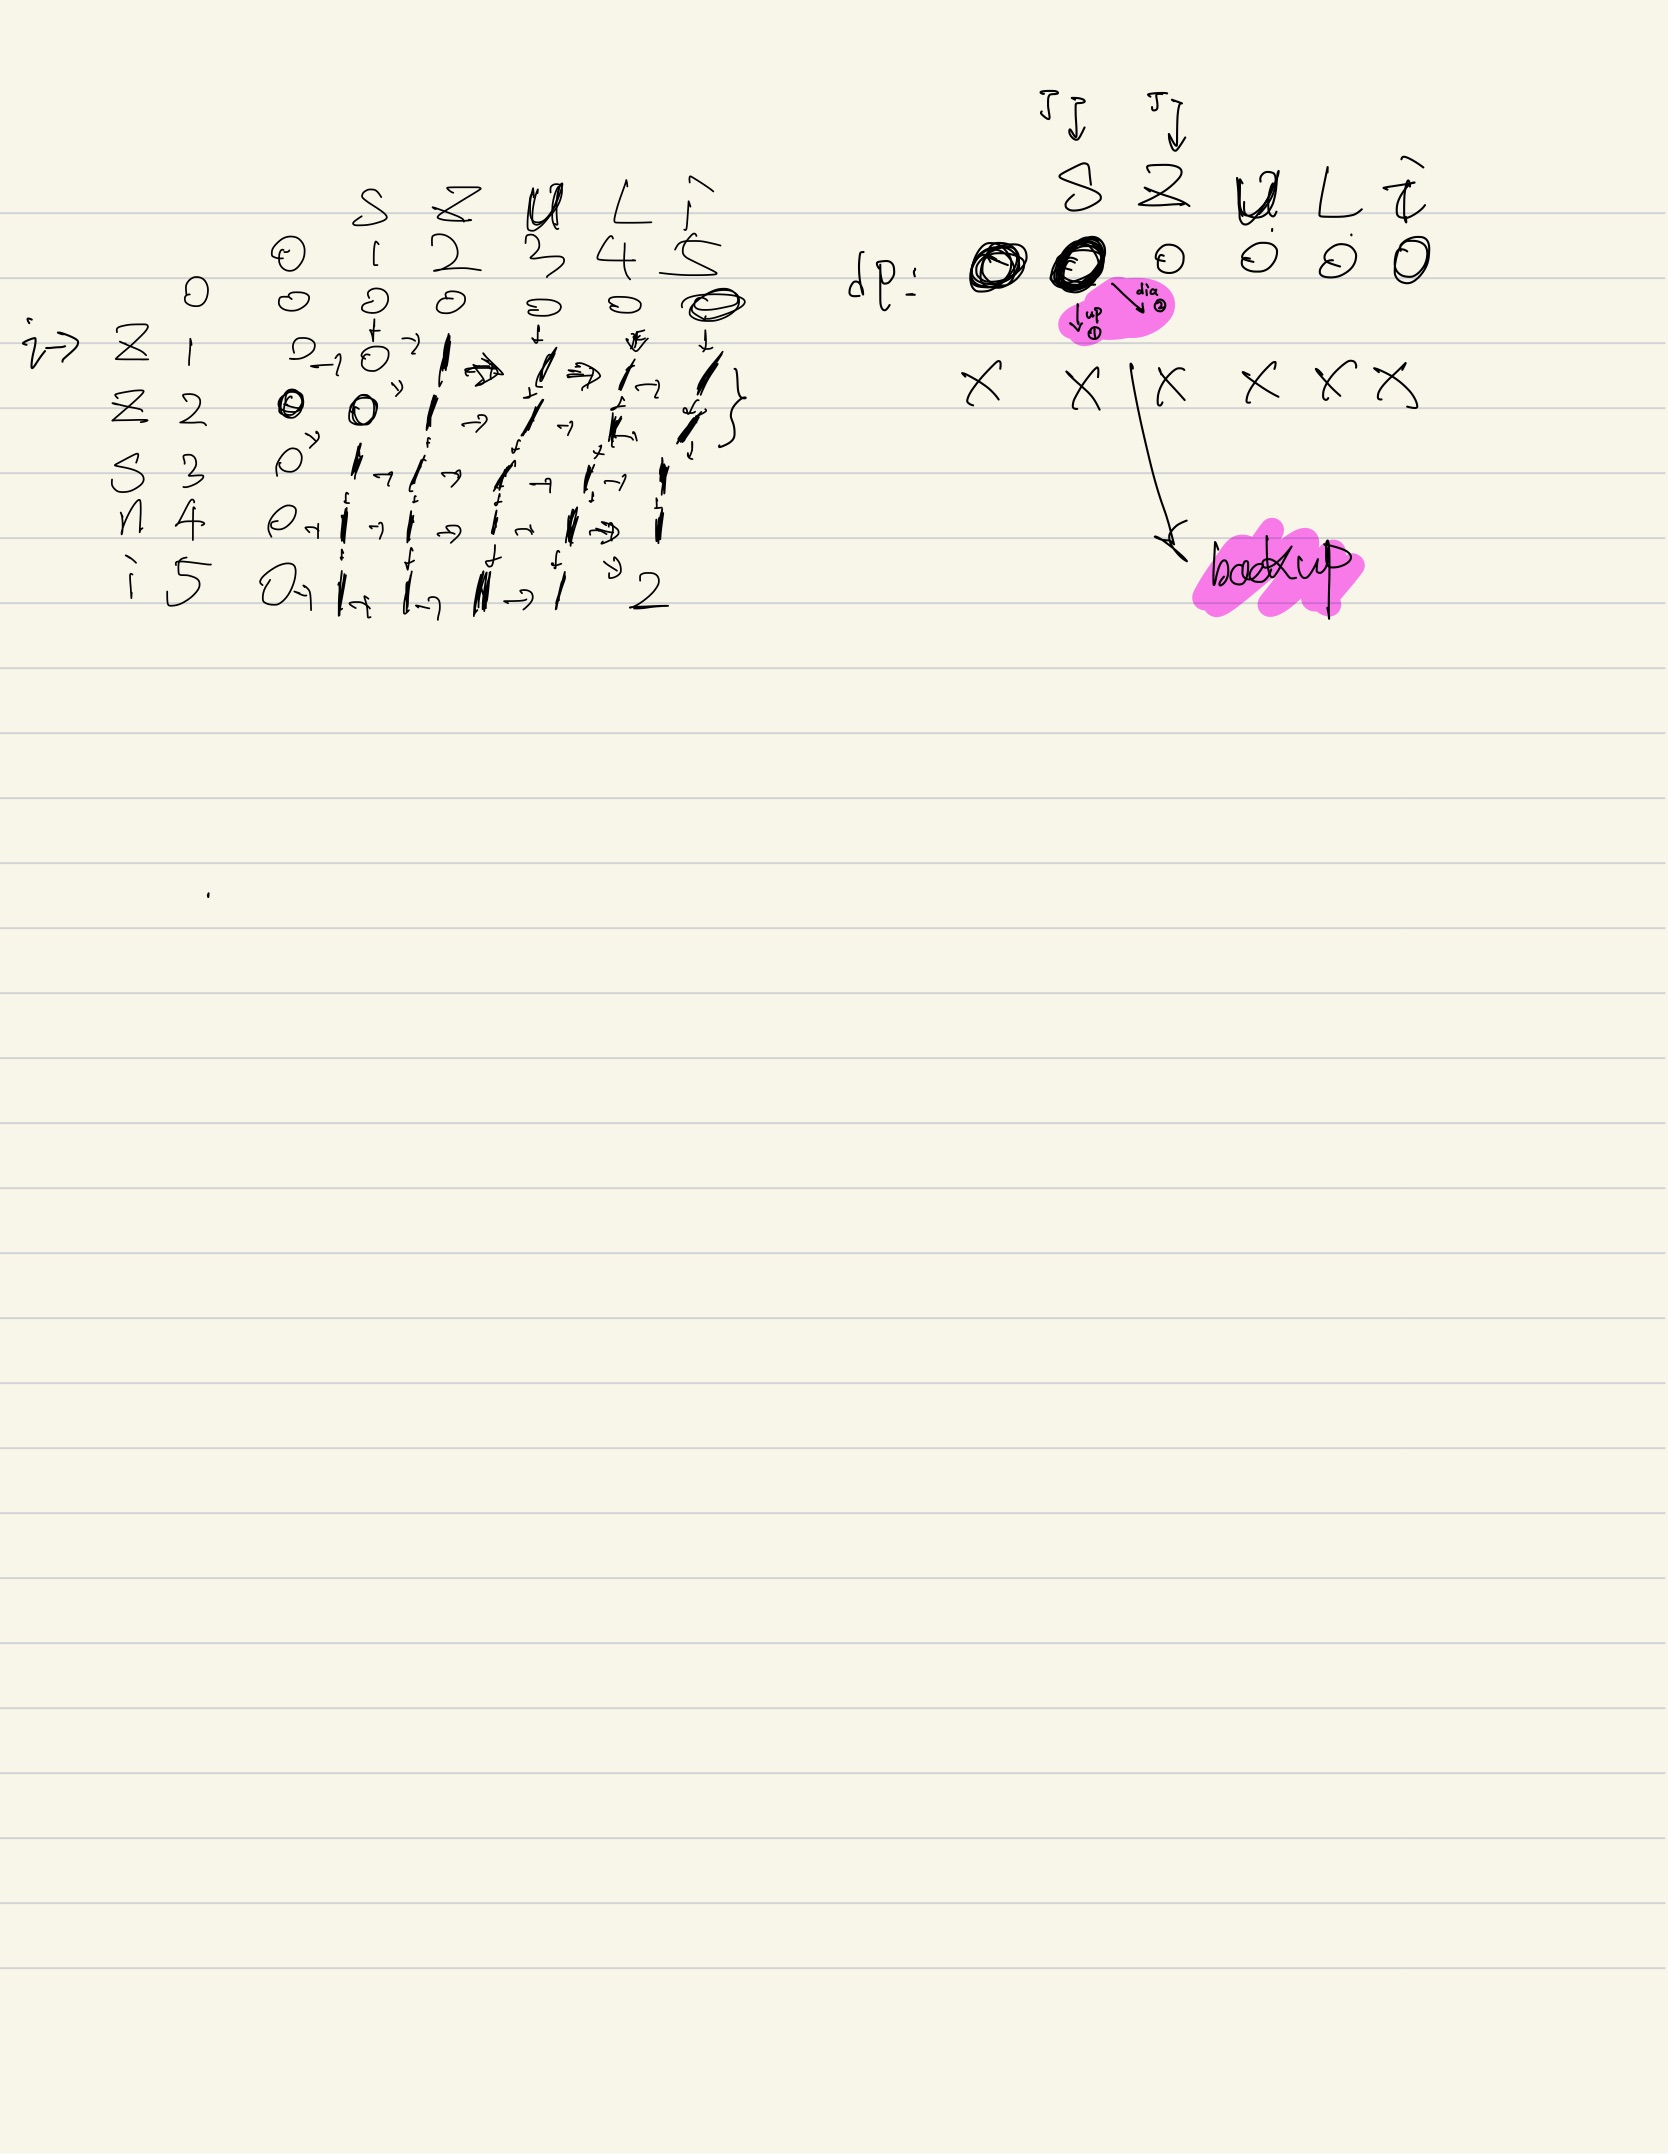 S Z U L i
0 1 2 3 4 5
0 0 0 0 0 0 0
i→ Z 1 0 → 0 → 1 → 1 → 1 → 1
Z 2 0 0 1 → 1 → 1 → 1 }
S 3 0 1 → 1 → 1 → 1 → 1
n 4 0 → 1 → 1 → 1 → 1 → 1
i 5 0 → 1 → 1 → 1 → 1 2
J ↓ J ↓
S Z U L i
dp: 0 0 0 0 0 0
↓ up ① ↘ dia ②
X X X X X X
backup